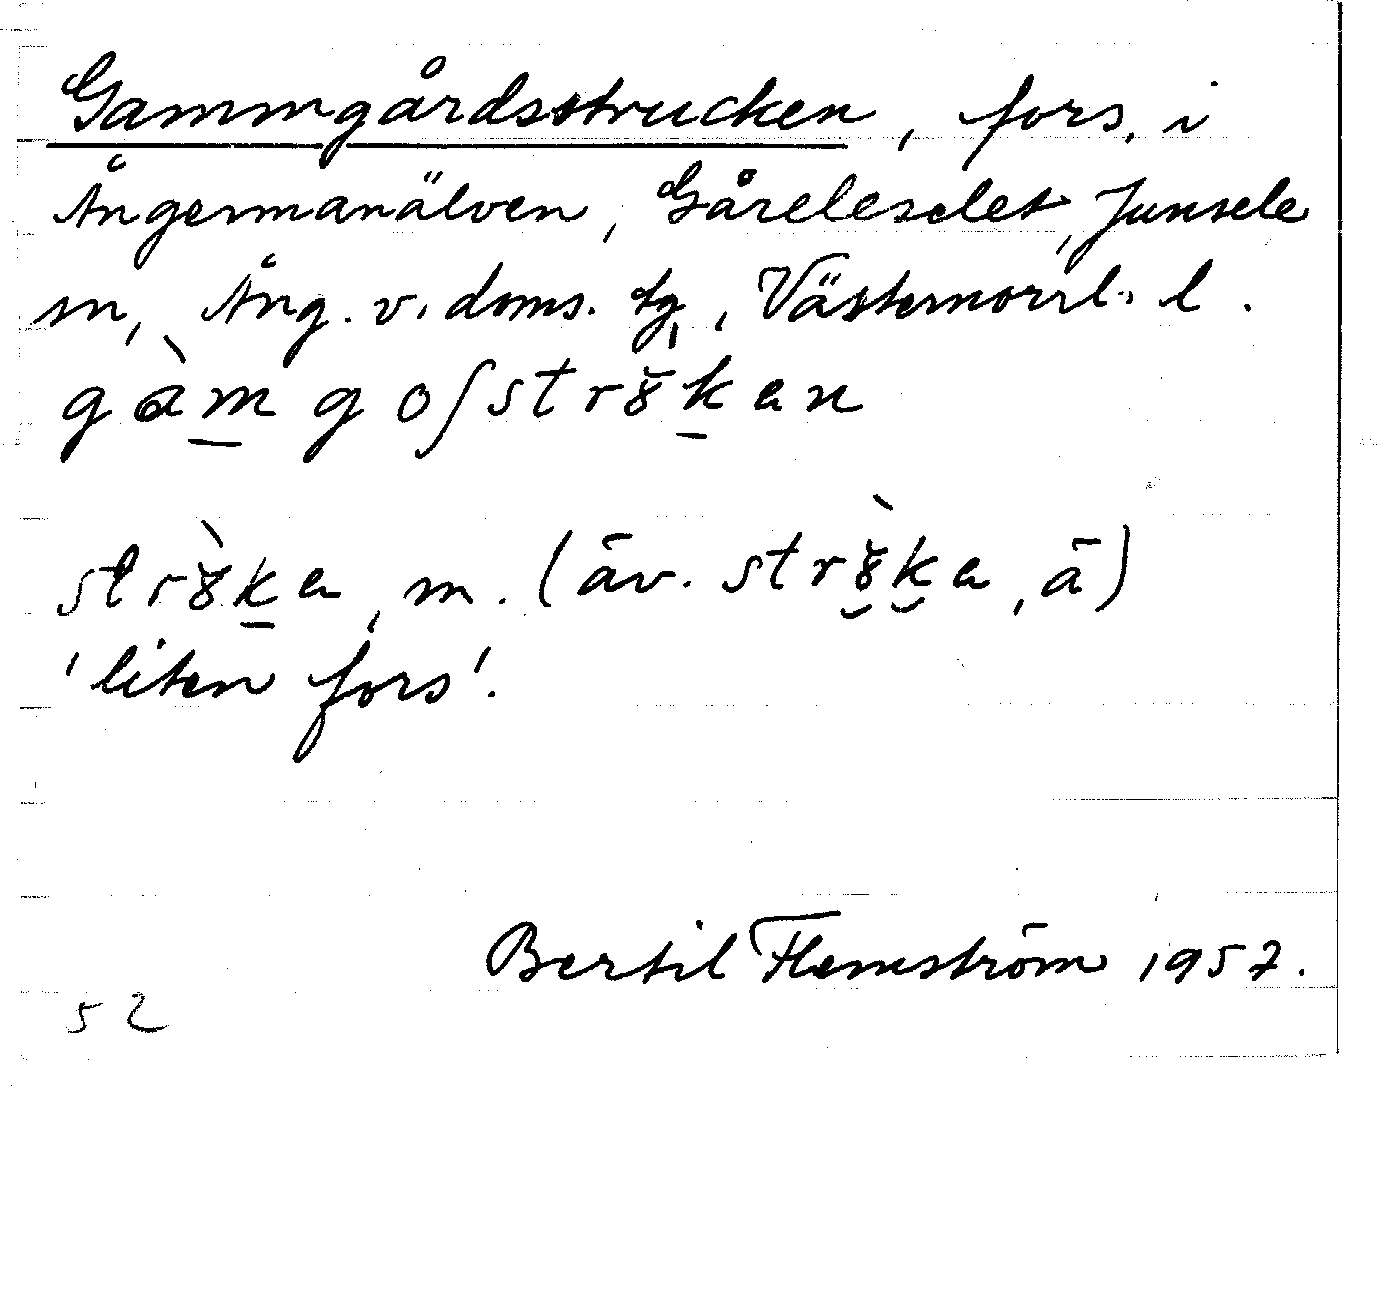 Gammgårdsstrucken, fors, i
Ångermanälven, Gåreleselet, Junsele
sn, Ång. v. doms. tg, Västernorrl. l.
gàm̲goʃstrɣ̆k̲en
strɣ̆̀k̲a, m. (äv. strɣ̆̀ka, ā)
'liten fors'.
Bertil Flemström 1957.
52